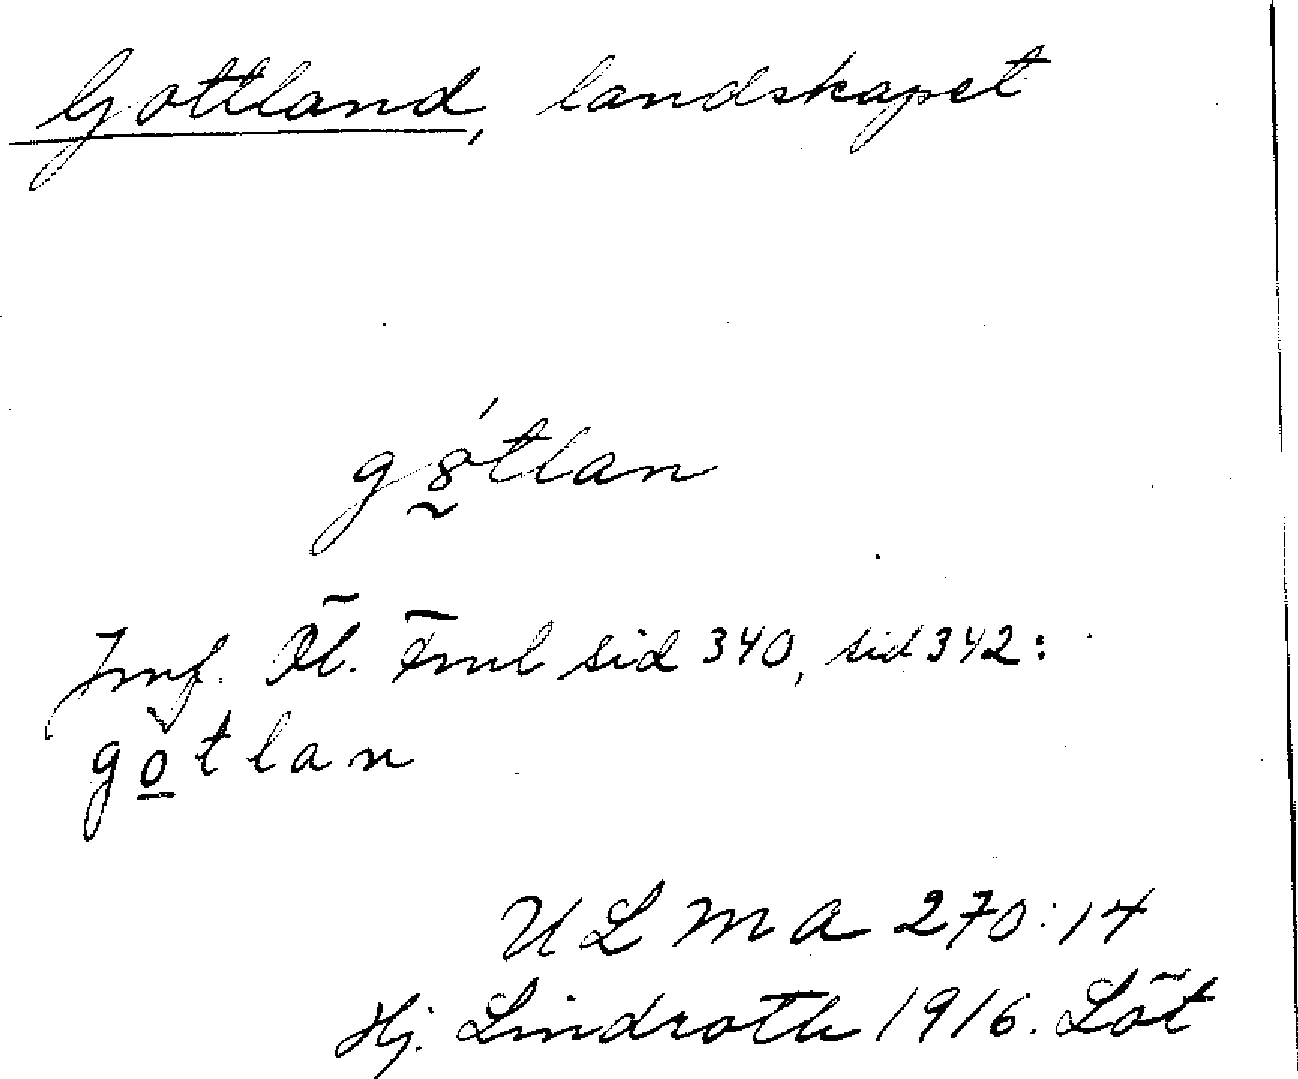 Gottland, landskapet
gótlan
Jmf. Öl. Fml sid 340, sid 342:
gotlan
ULMA 270:14
Hj. Lindroth 1916. Löt